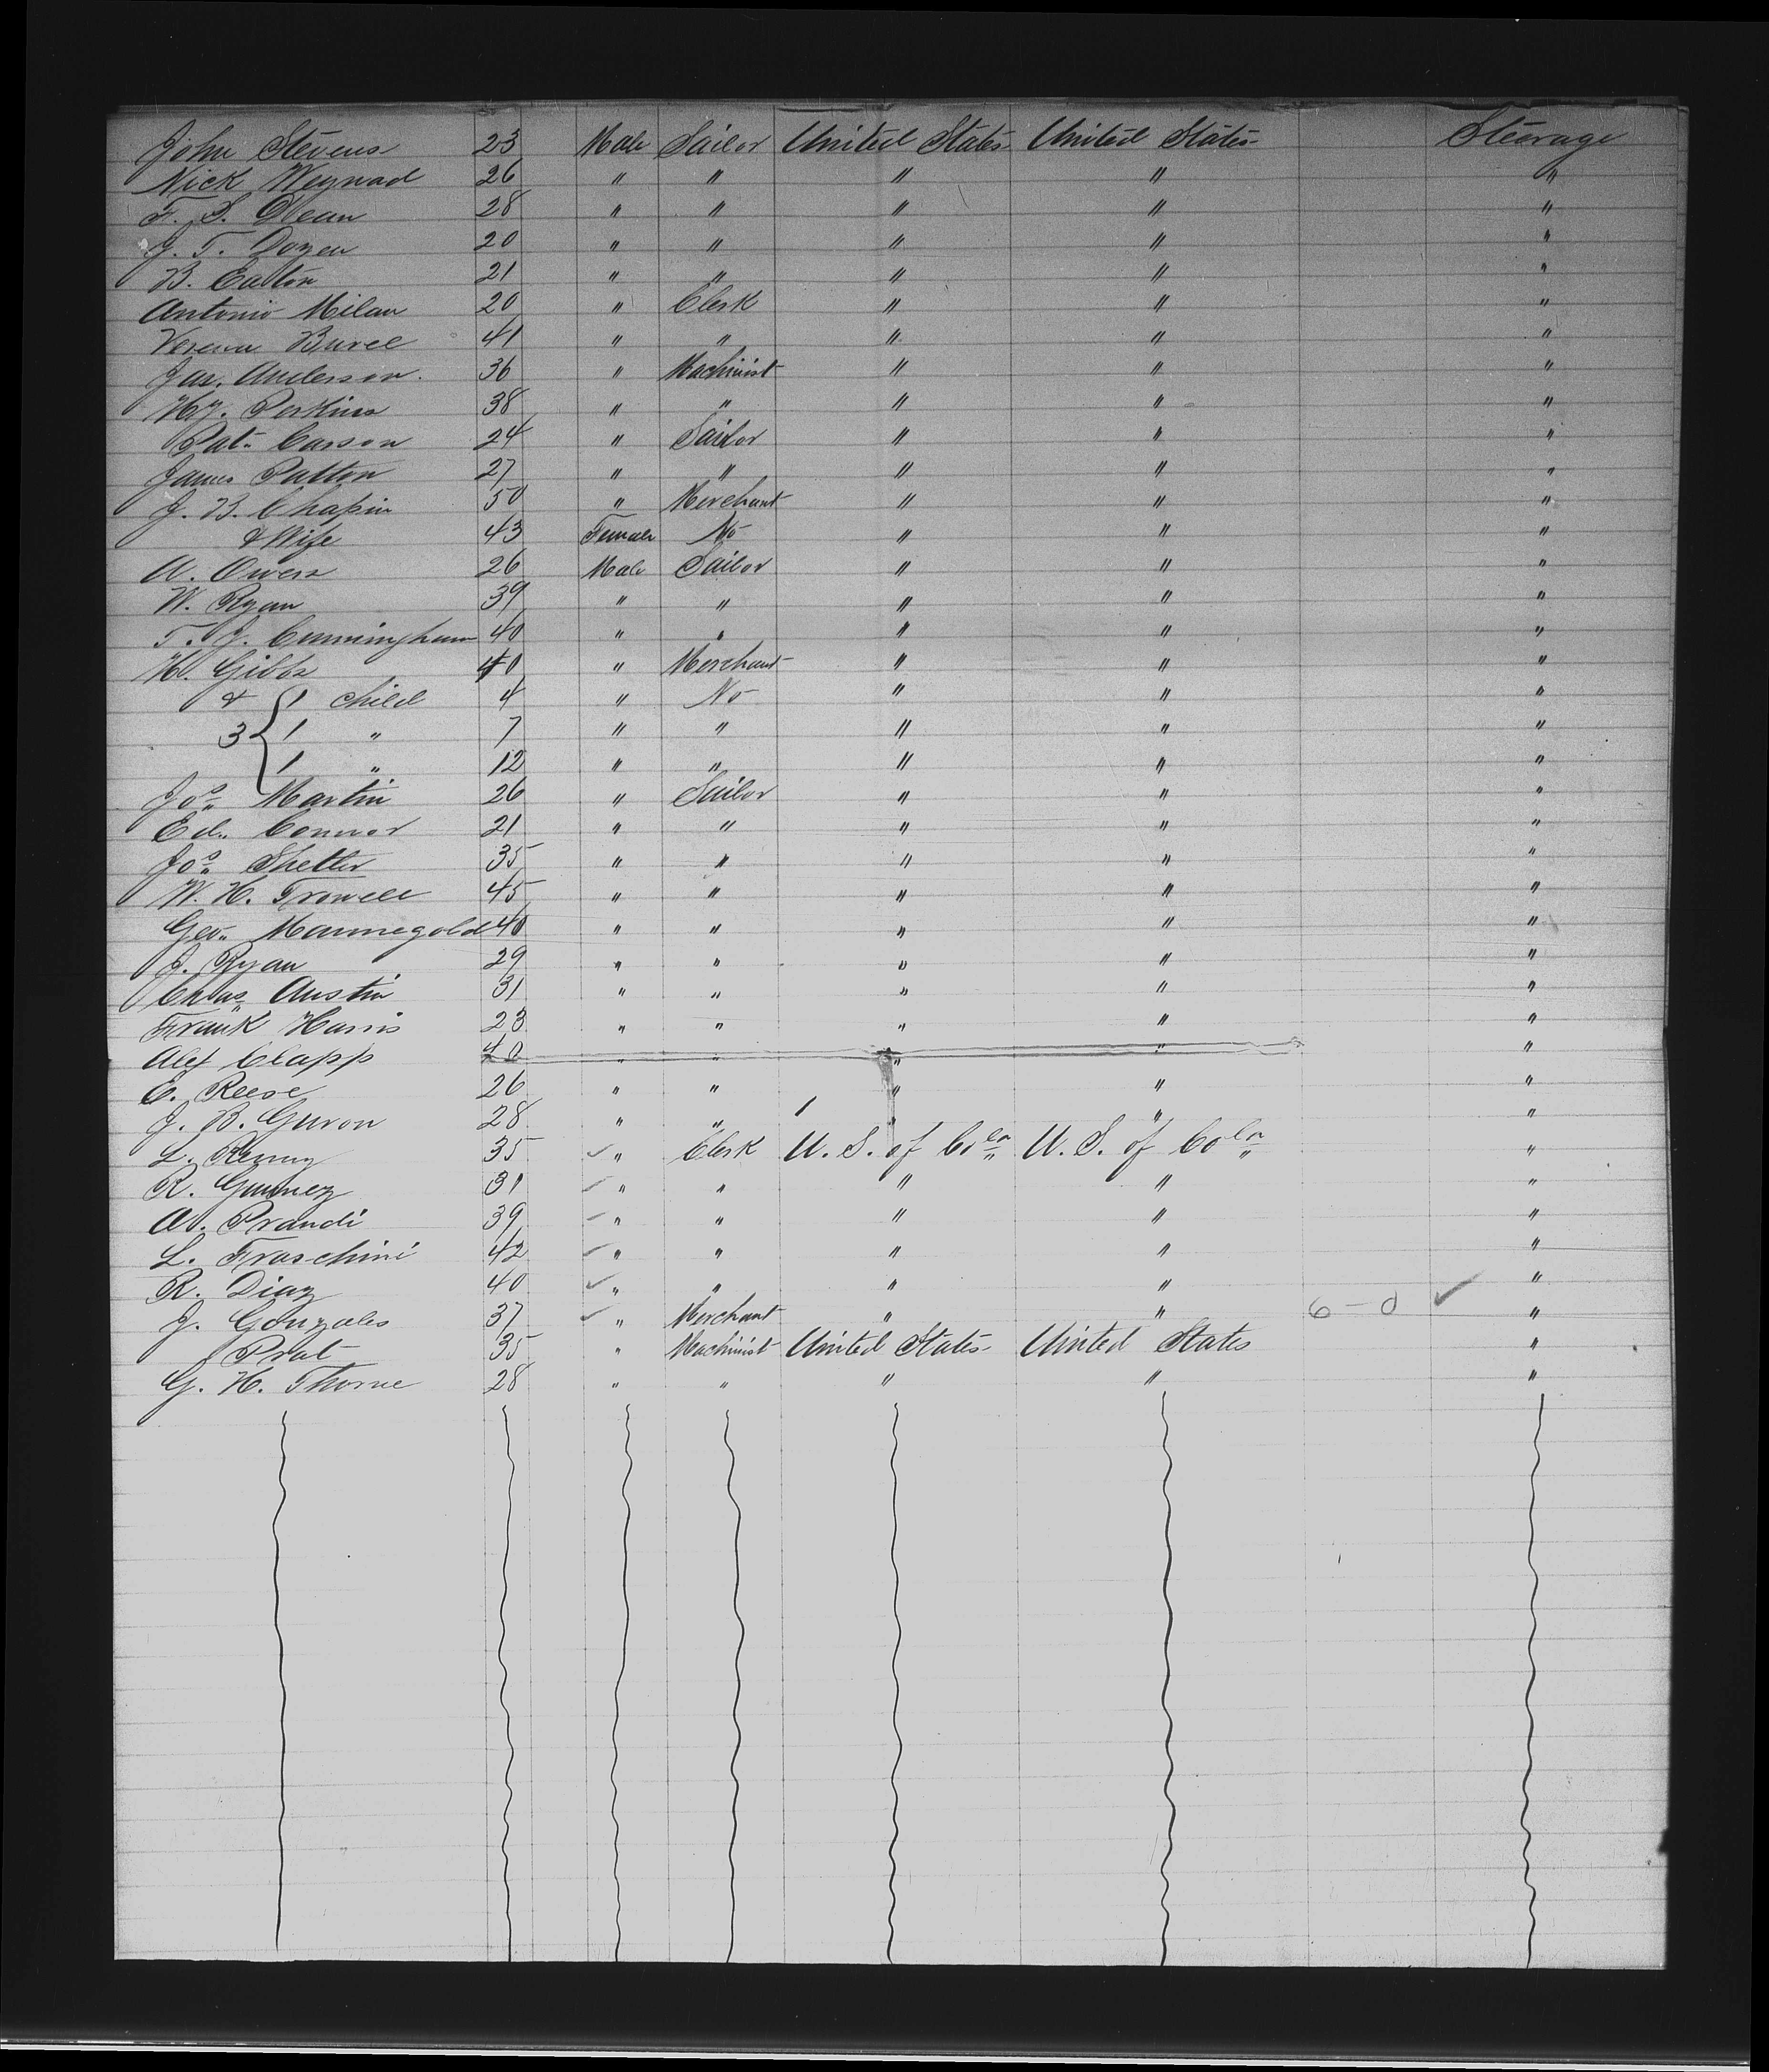 John Stevens 23 Male Sailor United States United States Steerage
Nick Weynad 26 " " " " "
F. S. Dean 28 " " " " "
J. T. Dozen 20 " " " " "
B. Eaton 21 " " " " "
Antonio Milan 20 " Clerk " " "
Burel 41 " " " " "
Jas. Anderson. 36 " Machinist " " "
Hy. Perkins 38 " " " " "
Pat. Carson 24 " Sailor " " "
James Patton 27 " " " " "
J. B. Chapin 50 " Merchant " " "
& Wife 43 Female No " " "
A. Owens 26 Male Sailor " " "
W. Ryan 39 " " " " "
T. J. Cunningham 40 " " " " "
H. Gibbs 40 " Merchant " " "
& 1 child 4 " No " " "
3 { 1 " 7 " " " " "
1 " 12 " " " " "
Jos. Martin 26 " Sailor " " "
Ed. Connor 21 " " " " "
Jos. Shetler 35 " " " " "
W. H. Trowell 45 " " " " "
Geo. Mannegold 40 " " " " "
J. Ryan 29 " " " " "
Chas. Austin 31 " " " " "
Frank Harris 23 " " " " "
Alex Clapp 40 " " " " "
C. Reese 26 " " " " "
J. B. Guron 28 " " " " "
L. Remy 35 ✓ " Clerk U. S. of Coln U. S. of Coln "
R. Gumez 31 ✓ " " " " "
A. Prandi 39 ✓ " " " " "
L. Fraschini 42 ✓ " " " " "
R. Diaz 40 ✓ " " " " "
J. Gonzales 37 ✓ " Merchant " " 6 - 0 ✓ "
Prat 35 " Machinist United States United States "
G. H. Thorne 28 " " " " "